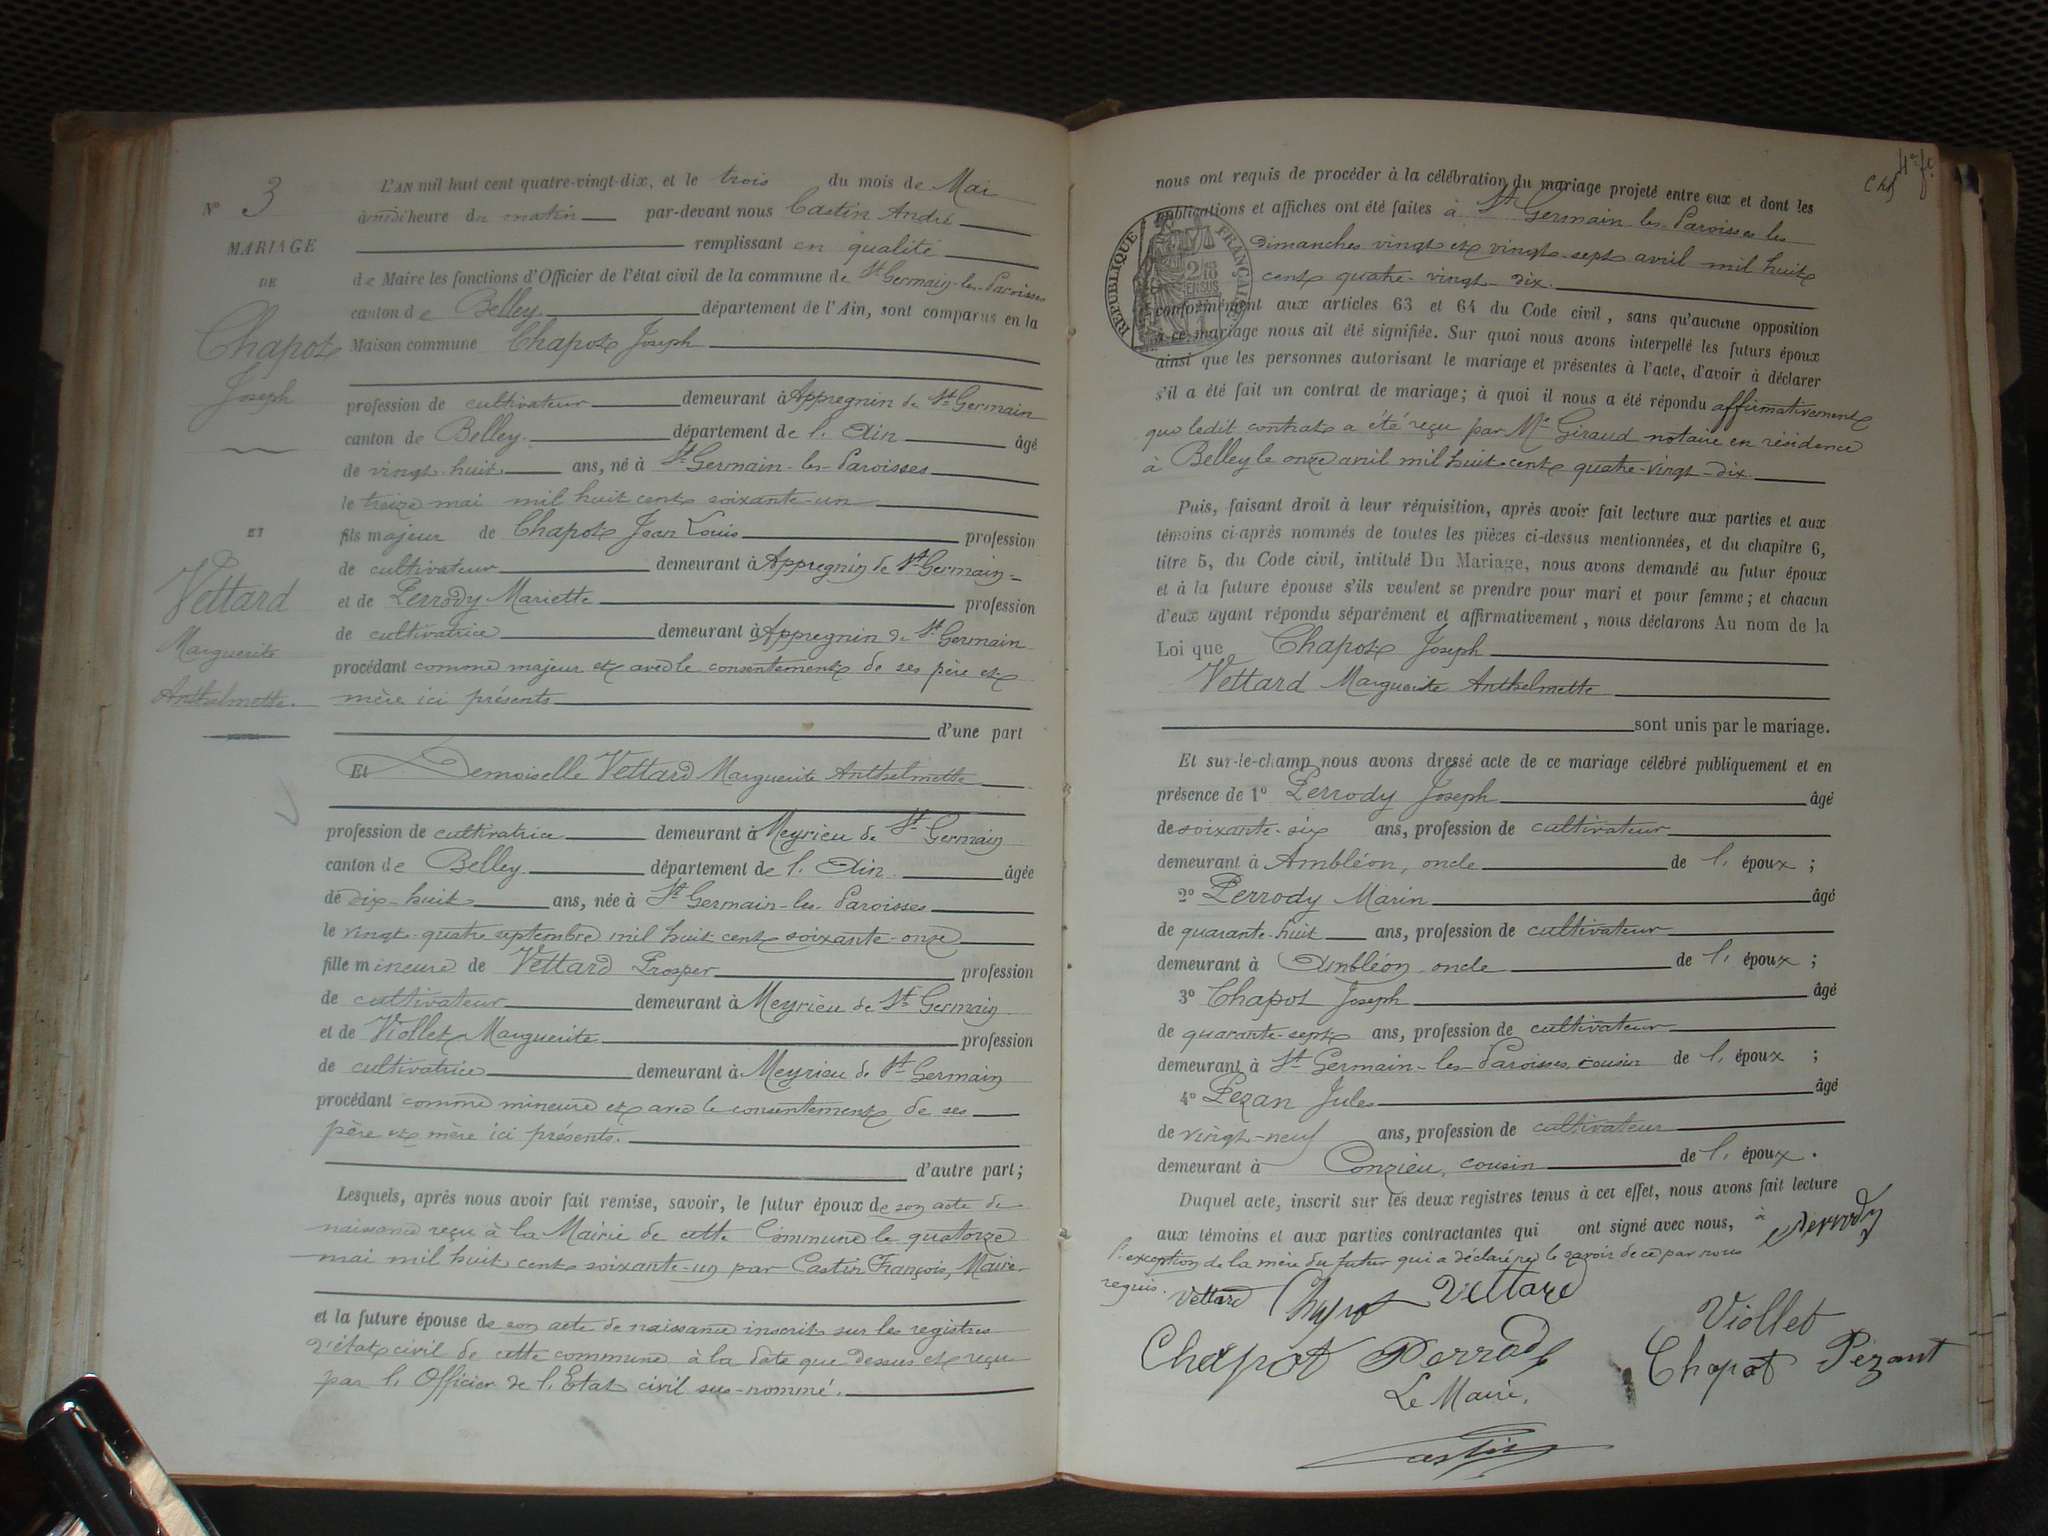 N° 3
MARIAGE
DE
Chapot
Joseph
ET
Vettard
Marguerite
Anthelmette.
L'AN mil huit cent quatre-vingt-dix, et le trois du mois de Mai
heure du matin par-devant nous Castin André
remplissant en qualité
de Maire les fonctions d'Officier de l'état civil de la commune de St Germain-les-Paroisses
canton de Belley département de l'Ain, sont comparus en la
Maison commune Chapot Joseph
profession de cultivateur demeurant à Appregnin de St Germain
canton de Belley. département de l'Ain âgé
de vingt-huit ans, né à St Germain-les-Paroisses
le treize mai mil huit cent soixante-un
fils majeur de Chapot Jean Louis profession
de cultivateur demeurant à Appregnin de St Germain
et de Perrody Mariette profession
de cultivatrice demeurant à Appregnin de St Germain
procédant comme majeur et avec le consentement de ses père et
mère ici présents
d'une part
Et Demoiselle Vettard Marguerite Anthelmette
profession de cultivatrice demeurant à Meyrieu de St Germain
canton de Belley département de l'Ain âgée
de dix-huit ans, née à St Germain-les-Paroisses
le vingt-quatre septembre mil huit cent soixante-onze
fille mineure de Vettard Prosper profession
de cultivateur demeurant à Meyrieu de St Germain
et de Viollet Marguerite profession
de cultivatrice demeurant à Meyrieu de St Germain
procédant comme mineure et avec le consentement de ses
père et mère ici présents.
d'autre part;
Lesquels, après nous avoir fait remise, savoir, le futur époux de son acte de
naissance reçu à la Mairie de cette Commune le quatorze
mai mil huit cent soixante-un par Castin François, Maire
et la future épouse de son acte de naissance inscrit sur les registres
d'état civil de cette commune à la date que dessus et reçu
par l'Officier de l'Etat civil sus-nommé.
nous ont requis de procéder à la célébration du mariage projeté entre eux et dont les
publications et affiches ont été faites à St Germain-les-Paroisses les
dimanches vingt et vingt-sept avril mil huit
cent quatre-vingt-dix.
conformément aux articles 63 et 64 du Code civil, sans qu'aucune opposition
à ce mariage nous ait été signifiée. Sur quoi nous avons interpellé les futurs époux
ainsi que les personnes autorisant le mariage et présentes à l'acte, d'avoir à déclarer
s'il a été fait un contrat de mariage; à quoi il nous a été répondu affirmativement
que ledit contrat a été reçu par Me Giraud notaire en résidence
à Belley le onze avril mil huit cent quatre-vingt-dix.
RÉPUBLIQUE FRANÇAISE
Puis, faisant droit à leur réquisition, après avoir fait lecture aux parties et aux
témoins ci-après nommés de toutes les pièces ci-dessus mentionnées, et du chapitre 6,
titre 5, du Code civil, intitulé Du Mariage, nous avons demandé au futur époux
et à la future épouse s'ils veulent se prendre pour mari et pour femme; et chacun
d'eux ayant répondu séparément et affirmativement, nous déclarons Au nom de la
Loi que Chapot Joseph
Vettard Marguerite Anthelmette
sont unis par le mariage.
Et sur-le-champ nous avons dressé acte de ce mariage célébré publiquement et en
présence de 1° Perrody Joseph âgé
de soixante-six ans, profession de cultivateur
demeurant à Ambléon, oncle de l'époux;
2° Perrody Marin âgé
de quarante-huit ans, profession de cultivateur
demeurant à Ambléon oncle de l'époux;
3° Chapot Joseph âgé
de quarante-sept ans, profession de cultivateur
demeurant à St Germain-les-Paroisses, cousin de l'époux;
4° Pezan Jules âgé
de vingt-neuf ans, profession de cultivateur
demeurant à Conzieu, cousin de l'époux.
Duquel acte, inscrit sur les deux registres tenus à cet effet, nous avons fait lecture
aux témoins et aux parties contractantes qui ont signé avec nous, à Perrody
l'exception de la mère du futur qui a déclaré ne le savoir de ce par nous
requis. Vettard Chapot Vettard
Viollet
Chapot Perrody Chapot Pezant
Le Maire,
Castin